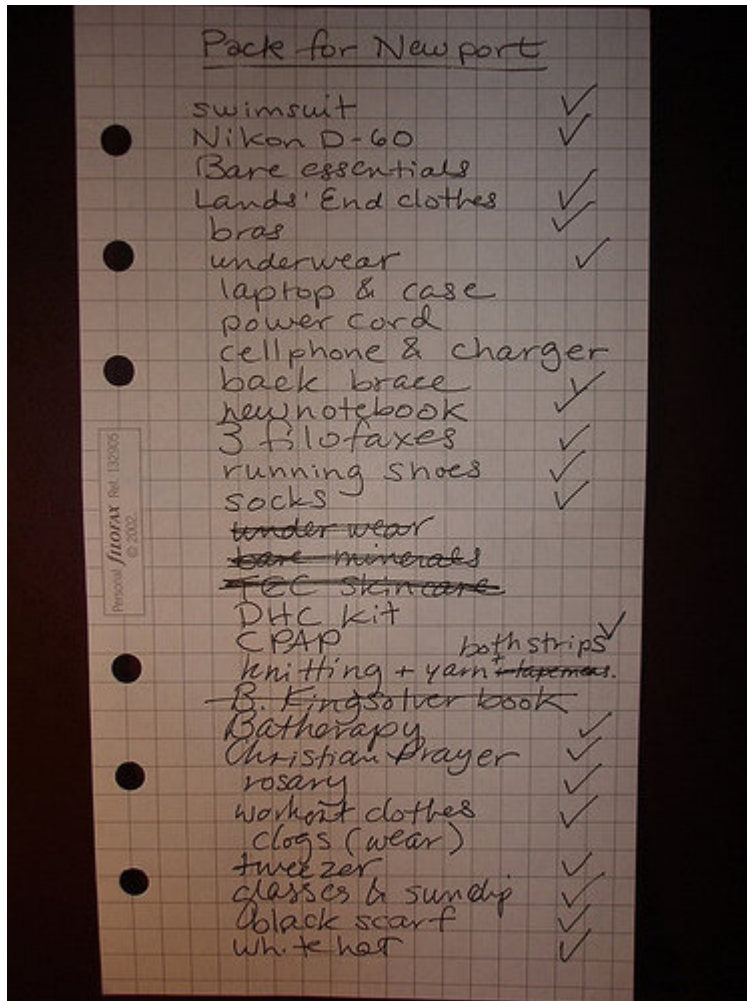 Pack for Newport
swimsuit ✓
Nikon D-60 ✓
Bare essentials
Lands' End clothes ✓
bras ✓
underwear ✓
laptop & case
power cord
cellphone & charger
back brace ✓
new notebook ✓
3 filofaxes ✓
running shoes ✓
socks ✓
under wear
bare minerals
TEC Skincare
DHC kit
CPAP
both strips ✓
knitting + yarn + tapemeas.
B. Kingsolver book
Batherapy ✓
Christian Prayer ✓
rosary ✓
workout clothes ✓
clogs (wear)
tweezer ✓
glasses & sunclip ✓
black scarf ✓
white hat ✓
Personal filofax Ref. 132905
© 2002